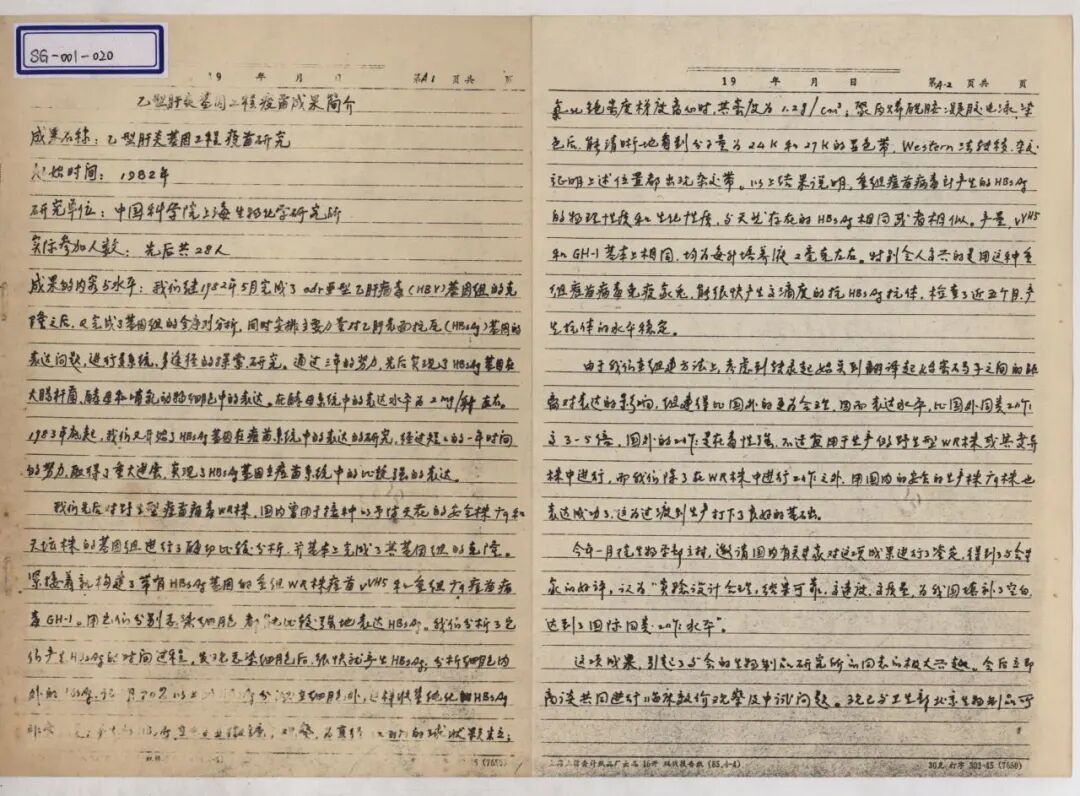 SG-001-020
19 年 月 日 第A1页共 页
乙型肝炎基因工程疫苗成果简介
成果名称：乙型肝炎基因工程疫苗研究
起始时间：1982年
研究单位：中国科学院上海生物化学研究所
实际参加人数：先后共28人
成果的内容与水平：我们继1982年5月完成了adr亚型乙肝病毒(HBV)基因组的克
隆之后，又完成了基因组的全序列分析，同时安排主要力量对乙肝表面抗原(HBsAg)基因的
表达问题，进行多系统，多途径的探索研究。通过三年的努力，先后实现了HBsAg基因在
大肠杆菌、酵母和哺乳动物细胞中的表达。在酵母系统中的表达水平为2mg/升左右。
1983年底起，我们又开始了HBsAg基因在痘苗系统中的表达的研究，经过短短的一年时间
的努力，取得了重大进展，实现了HBsAg基因在痘苗系统中的比较强的表达。
我们先后对野生型痘苗病毒WR株，国内曾用于接种以手预天花的安全株广9和
天坛株的基因组进行了酶切比较分析，并基本上完成了其基因组的克隆。
紧接着就构建了带有HBsAg基因的重组WR株痘苗vVH5和重组广9痘苗病
毒GH-1。用它们分别感染细胞都比较强地表达HBsAg。我们分析了它
们产生HBsAg的时间过程，发现感染细胞后，很快就产生HBsAg，分析细胞内
外的 以上 分泌至细胞外，这样收集纯化的HBsAg
的球状颗粒；
19 年 月 日 第A-2页共 页
氯化铯密度梯度离心时，其密度为1.2g/cm³；聚丙烯酰胺凝胶电泳，染
色后，能清晰地看到分子量为24K和27K的蛋色带，Western法转移，杂交
证明上述位置都出现杂交带。以上结果说明，重组痘苗病毒所产生的HBsAg
的物理性质和生化性质，与天然存在的HBsAg相同或者相似。产量，vVH5
和GH-1基本上相同，均为每升培养液2毫克左右。特别令人高兴的是用这种重
组痘苗病毒免疫家兔，能很快产生高滴度的抗HBsAg抗体，检查了近五个月，产
生抗体的水平稳定。
由于我们在组建方法上，考虑到转录起始点到翻译起始密码子之间的距
离对表达的影响，组建得比国外的更为合理，因而表达水平，比国外同类工作
高3-5倍，国外的工作是在毒性强，不适宜用于生产的野生型WR株或其变异
株中进行，而我们除了在WR株中进行工作之外，用国内的安全的生产株广9株也
表达成功了，这为过渡到生产打下了良好的基础。
今年一月院生物学部主持，邀请国内有关专家对这项成果进行了鉴定，得到了与会专
家的好评，认为“实验设计合理，结果可靠，高速度，高质量，为我国填补了空白，
达到了国际同类工作水平”。
这项成果，引起了与会的生物制品研究所的同志的极大兴趣。会后立即
商谈共同进行临床效价观察及中试问题。现已与卫生部北京生物制品所
上海上信会计纸品厂出品 16开 双线报告纸 (85.4-4) 30克 打字 303-45 (7650)
(7650)